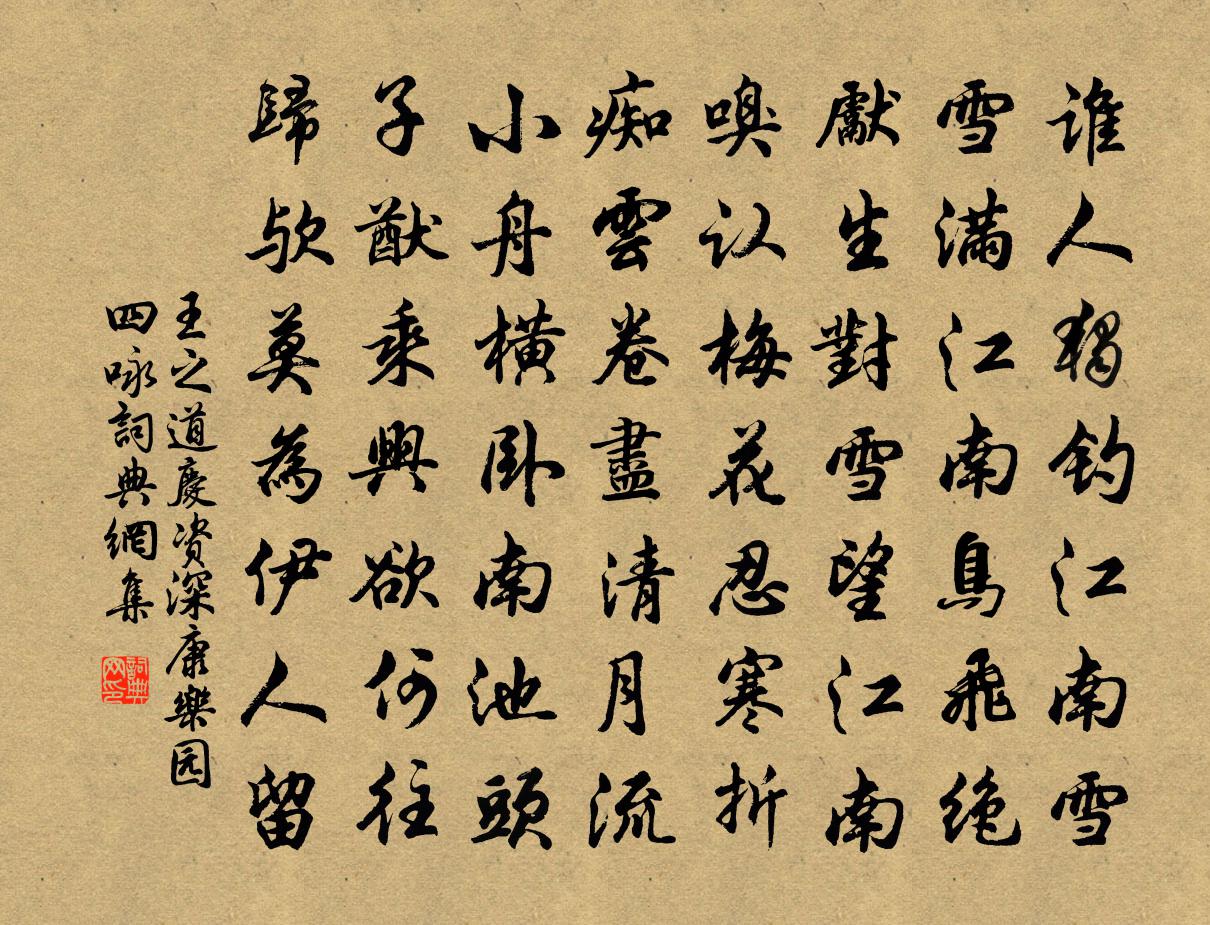 谁人獨钓江南雪
雪滿江南鳥飛绝
獻生對雪望江南
嗅认梅花忍寒折
痴雲卷盡清月流
小舟橫卧南池頭
子猷乘興欲何往
歸欤莫為伊人留
王之道慶资深康樂园
四咏詞典網集
詞典网印